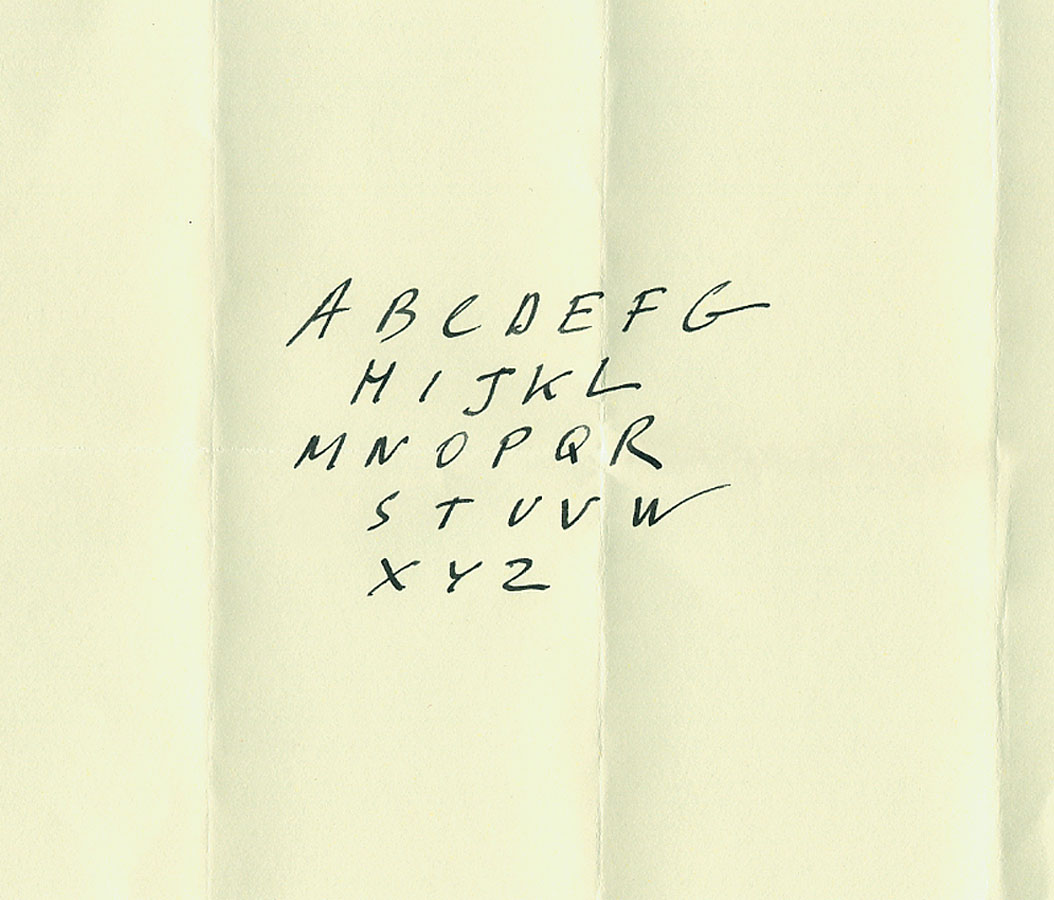 A B C D E F G
H I J K L
M N O P Q R
S T U V W
X Y Z